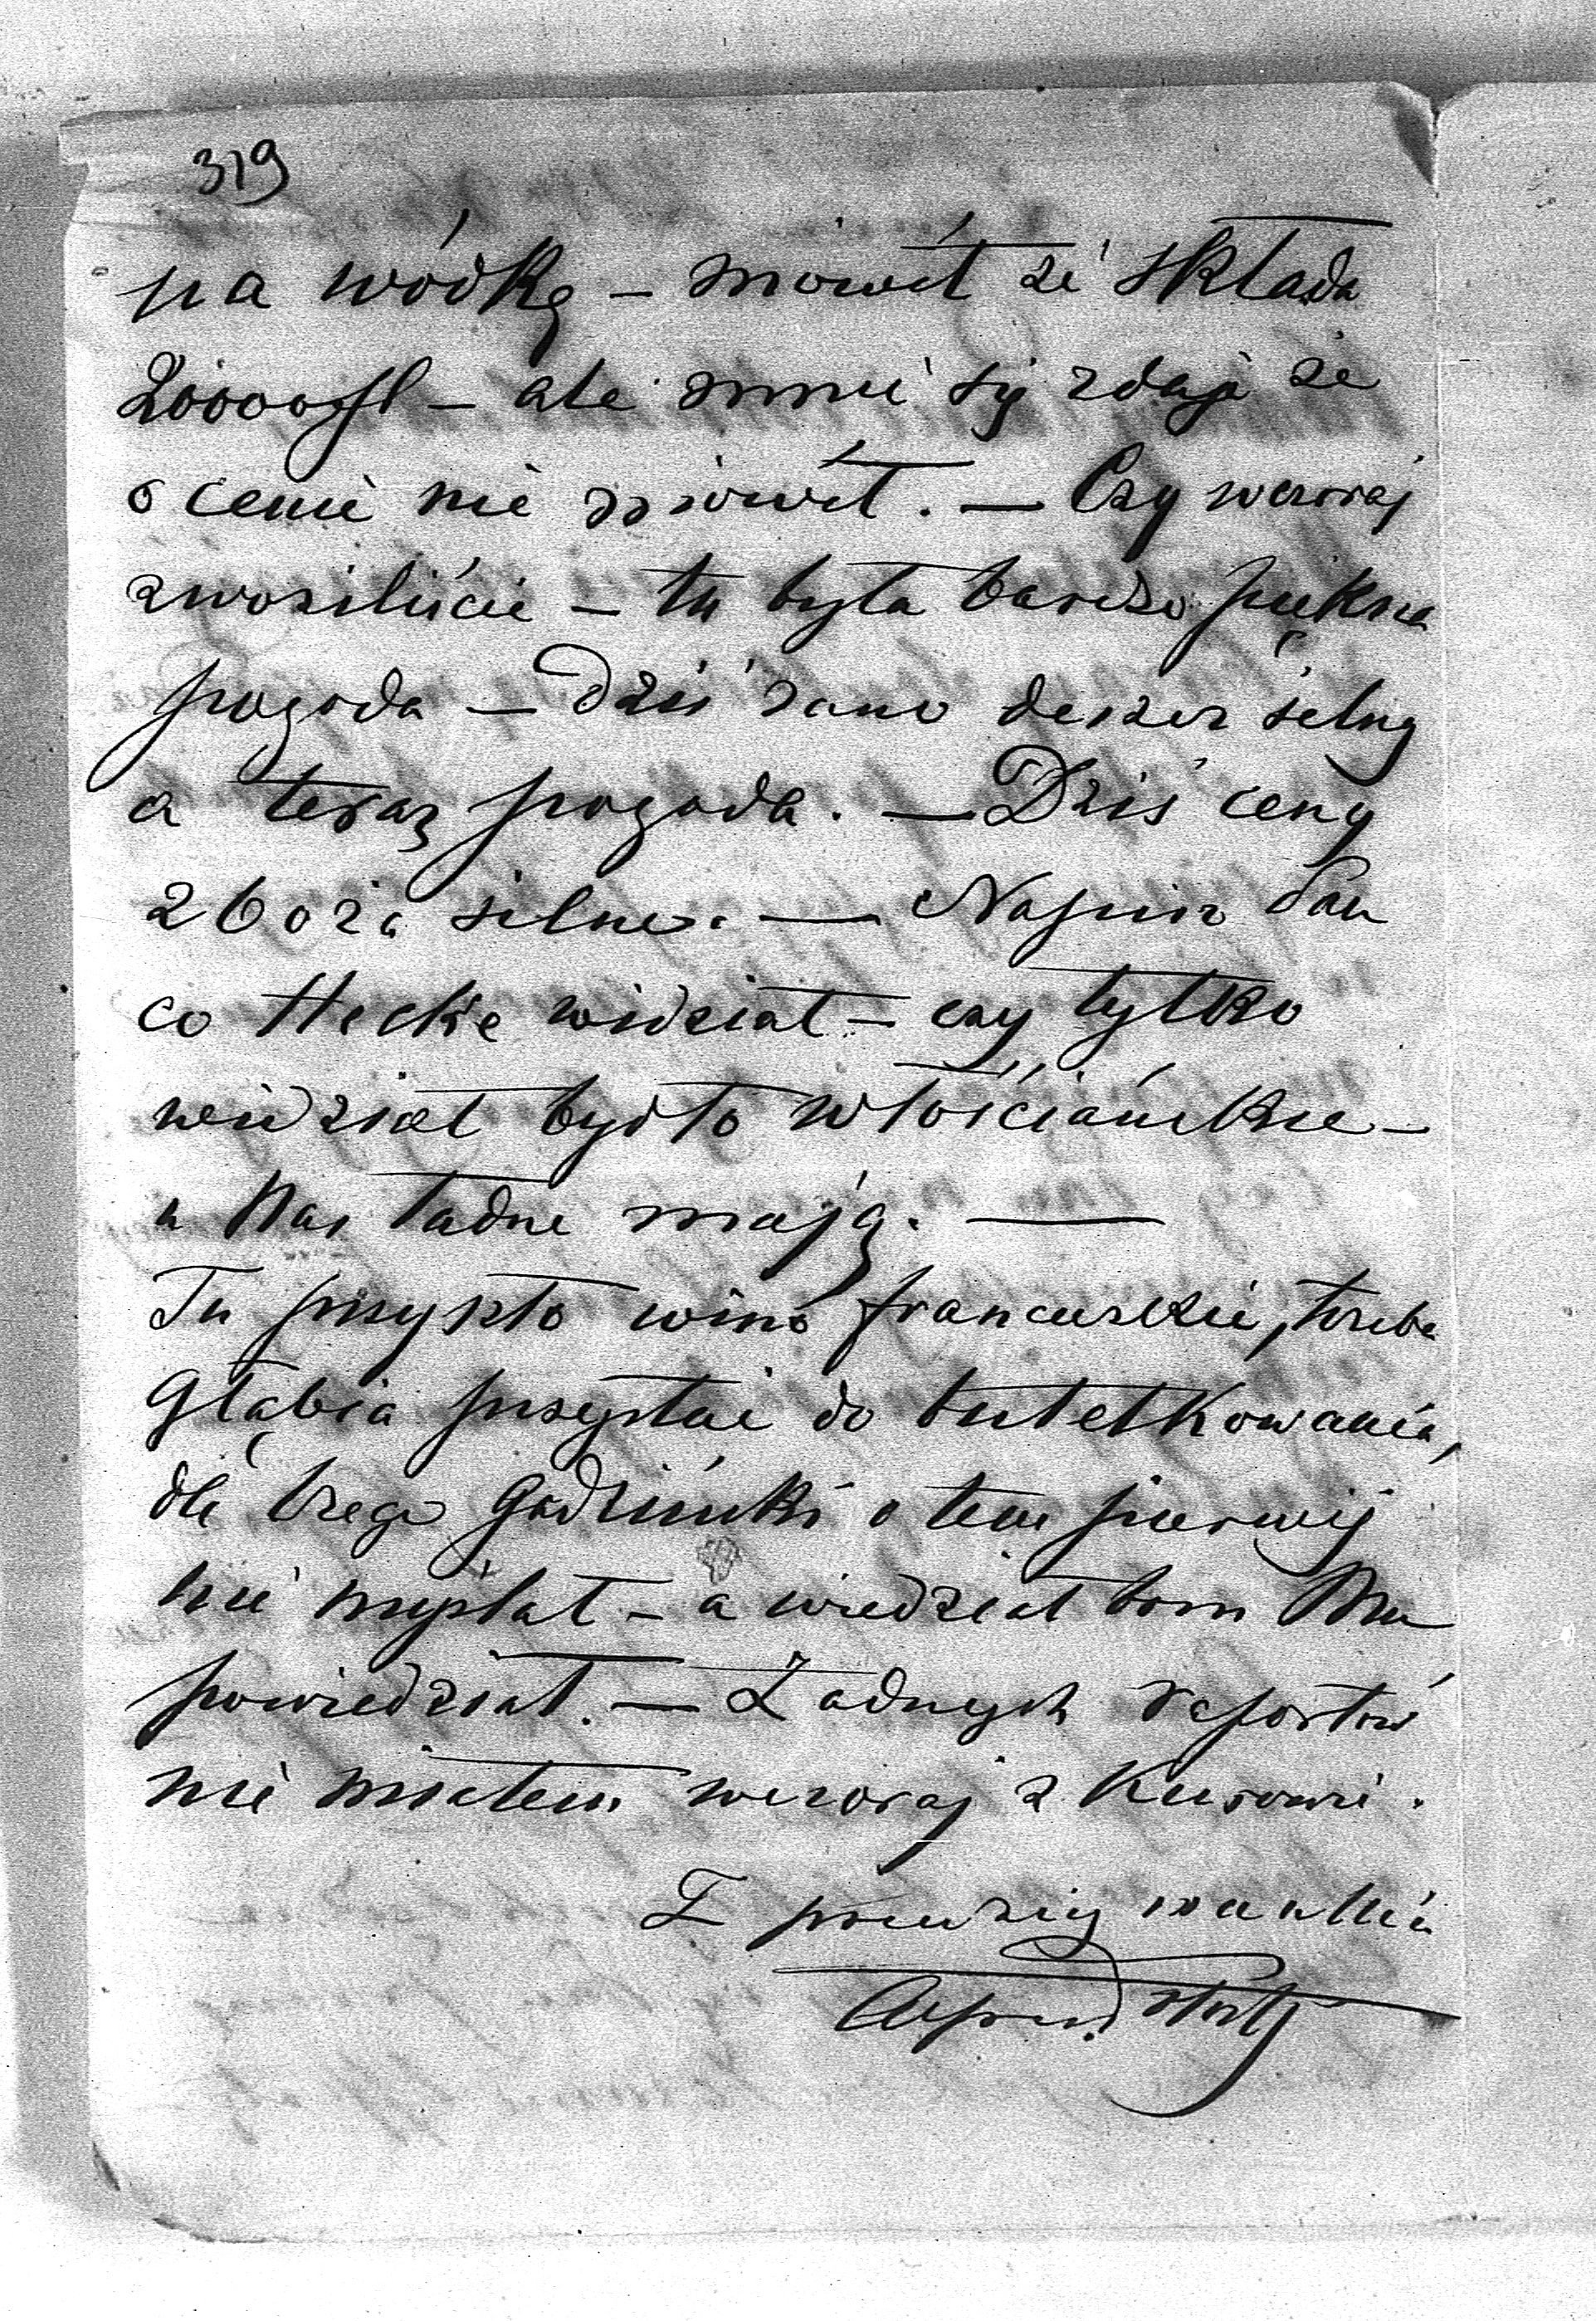 319
na wódkę – mówił że składa
20000 fl – ale mnie się zdaje że
o cenie nie mówił. – Czy wczoraj
zwoziliście – tu była bardzo piękna
pogoda – Dziś rano deszcz silny
a teraz pogoda. – Dziś ceny
zboża silne. – Napisz Pan
co Hecke widział – czy tylko
widział bydło włościańskie –
u Nas ładne mają. –
Tu przyszło wino francuskie, trzeba
Głąbia przysłać do butelkowania,
dla czego Godziński o tem pierwij
nie myślał – a wiedział bom Mu
powiedział. – Żadnych raportów
nie miałem wczoraj z Kurowic.
Z
Alfred